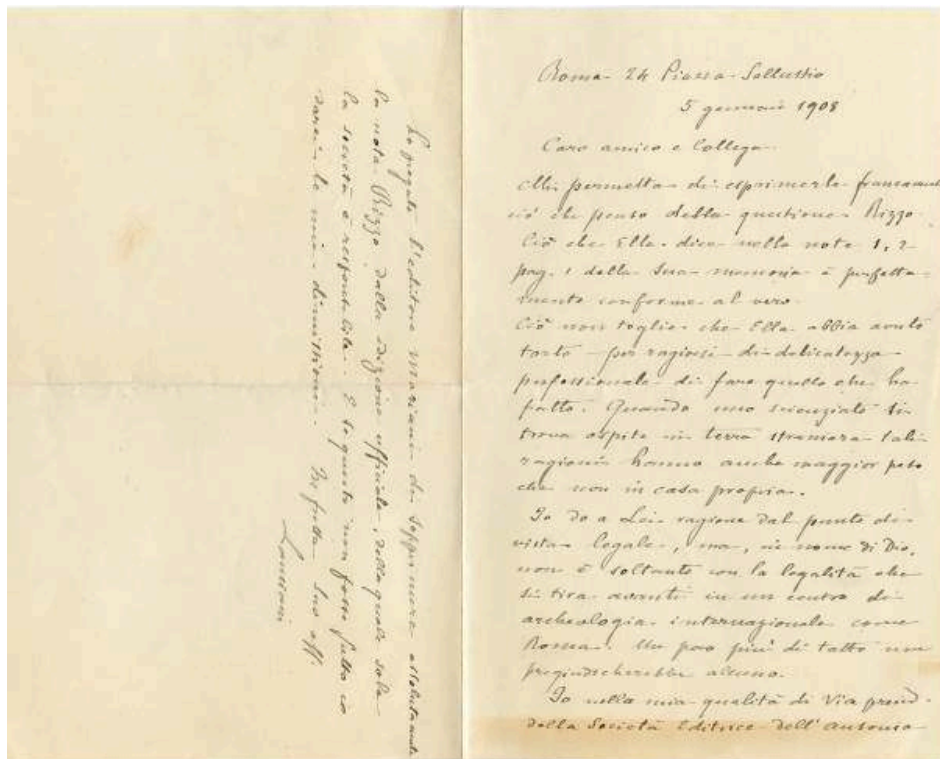 Roma 24 Piazza Sallustio
5 gennaio 1908
Caro amico e Collega
Mi permetta di esprimerle francament
ciò che penso della questione Rizzo
Ciò che Ella dice nelle note 1, 2
pag. 1 della Sua memoria è perfetta-
mente conforme al vero.
Ciò non toglie che Ella abbia avuto
torto per ragioni di delicatezza
professionale di fare quello che ha
fatto. Quando uno scienziato si
trova ospite in terra straniera tali
ragioni hanno anche maggior peso
che non in casa propria.
Io do a Lei ragione dal punto di
vista legale, ma, in nome di Dio,
non è soltanto con la legalità che
si tira avanti in un centro di
archeologia internazionale come
Roma. Un poco più di tatto non
pregiudicherebbe alcuno.
Io nella mia qualità di Vice presid.
della Società Editrice dell'Ausonia
ho pregato l'editore Mariani di sopprimere assolutamente
la nota Rizzo dalla edizione ufficiale, della quale sola
la società è responsabile. E se questo non fosse fatto io
darei le mie dimissioni. In fretta Suo aff.
Lanciani